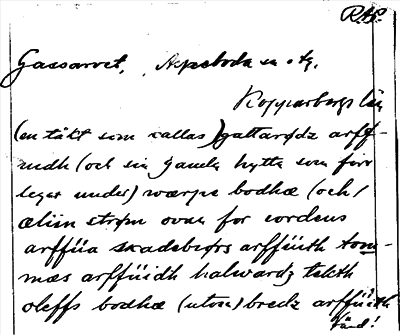 RAp.
Gassarvet, Aspeboda sn o tg.
Kopparbergs län
(en täkt som kallas) gattarødz arff-
nidh (och sin gamla hytta som förr
leger under) wærpe bodhæ (och)
ælim strøm ovan for cordens
arffüa skadebørs arffüith tom-
mæs arffüidh halwardz tækth
oleffs bodhæ (utom) bredz arffüith